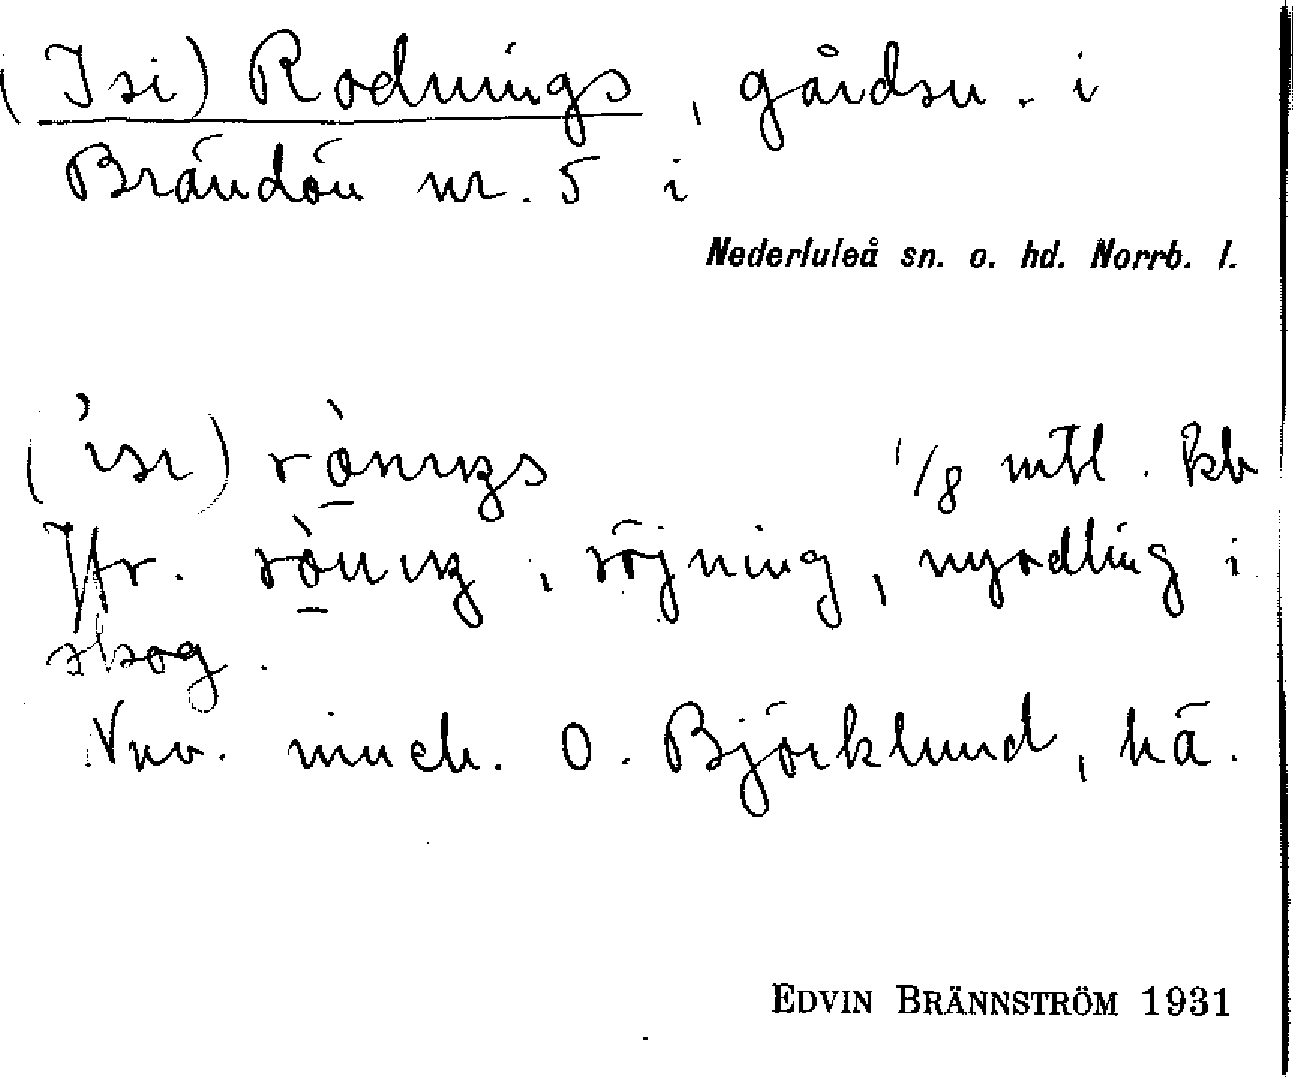 (Isi) Rodnings, gårdsn. i
Brändön nr. 5 i
Nederluleå sn. o. hd. Norrb. l.
('ısı) rò̠nıŋs 1/8 mtl. kb
Jfr. rò̠nıŋ, röjning, nyodling i
skog.
Nuv. inneh. O. Björklund, hä.
EDVIN BRÄNNSTRÖM 1931